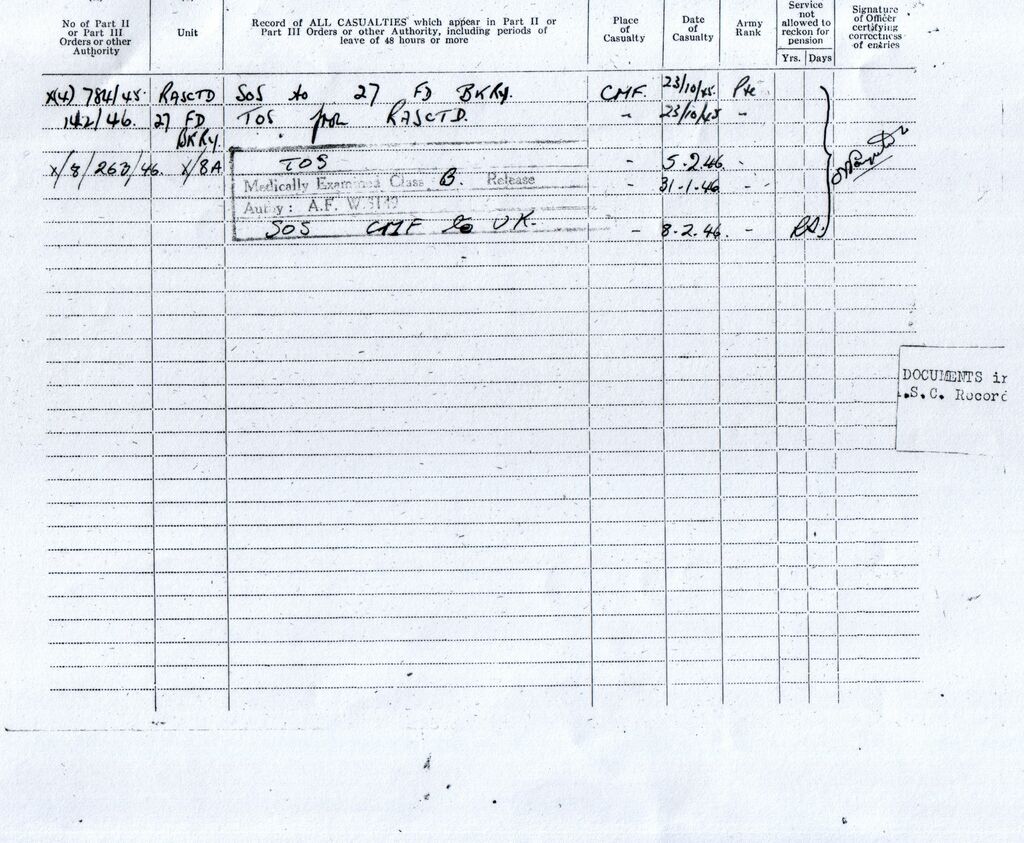 No of Part II or Part III Orders or other Authority
Unit
Record of ALL CASUALTIES which appear in Part II or Part III Orders or other Authority, including periods of leave of 48 hours or more
Place of Casualty
Date of Casualty
Army Rank
Service not allowed to reckon for pension
Yrs. Days
Signature of Officer certifying correctness of entries
X(4) 784/45. RASCTD SOS to 27 FD BKRY. CMF. 23/10/45. Pte
142/46. 27 FD BKRY. TOS from RASCTD. - 23/10/45 -
X/8/263/46. X/8A TOS - 5.2.46. -
Medically Examined Class B. Release - 31.1.46. -
Auth'y: A.F. W.5149
SOS CMF to UK. - 8.2.46. -
DOCUMENTS in
.S.C. Record